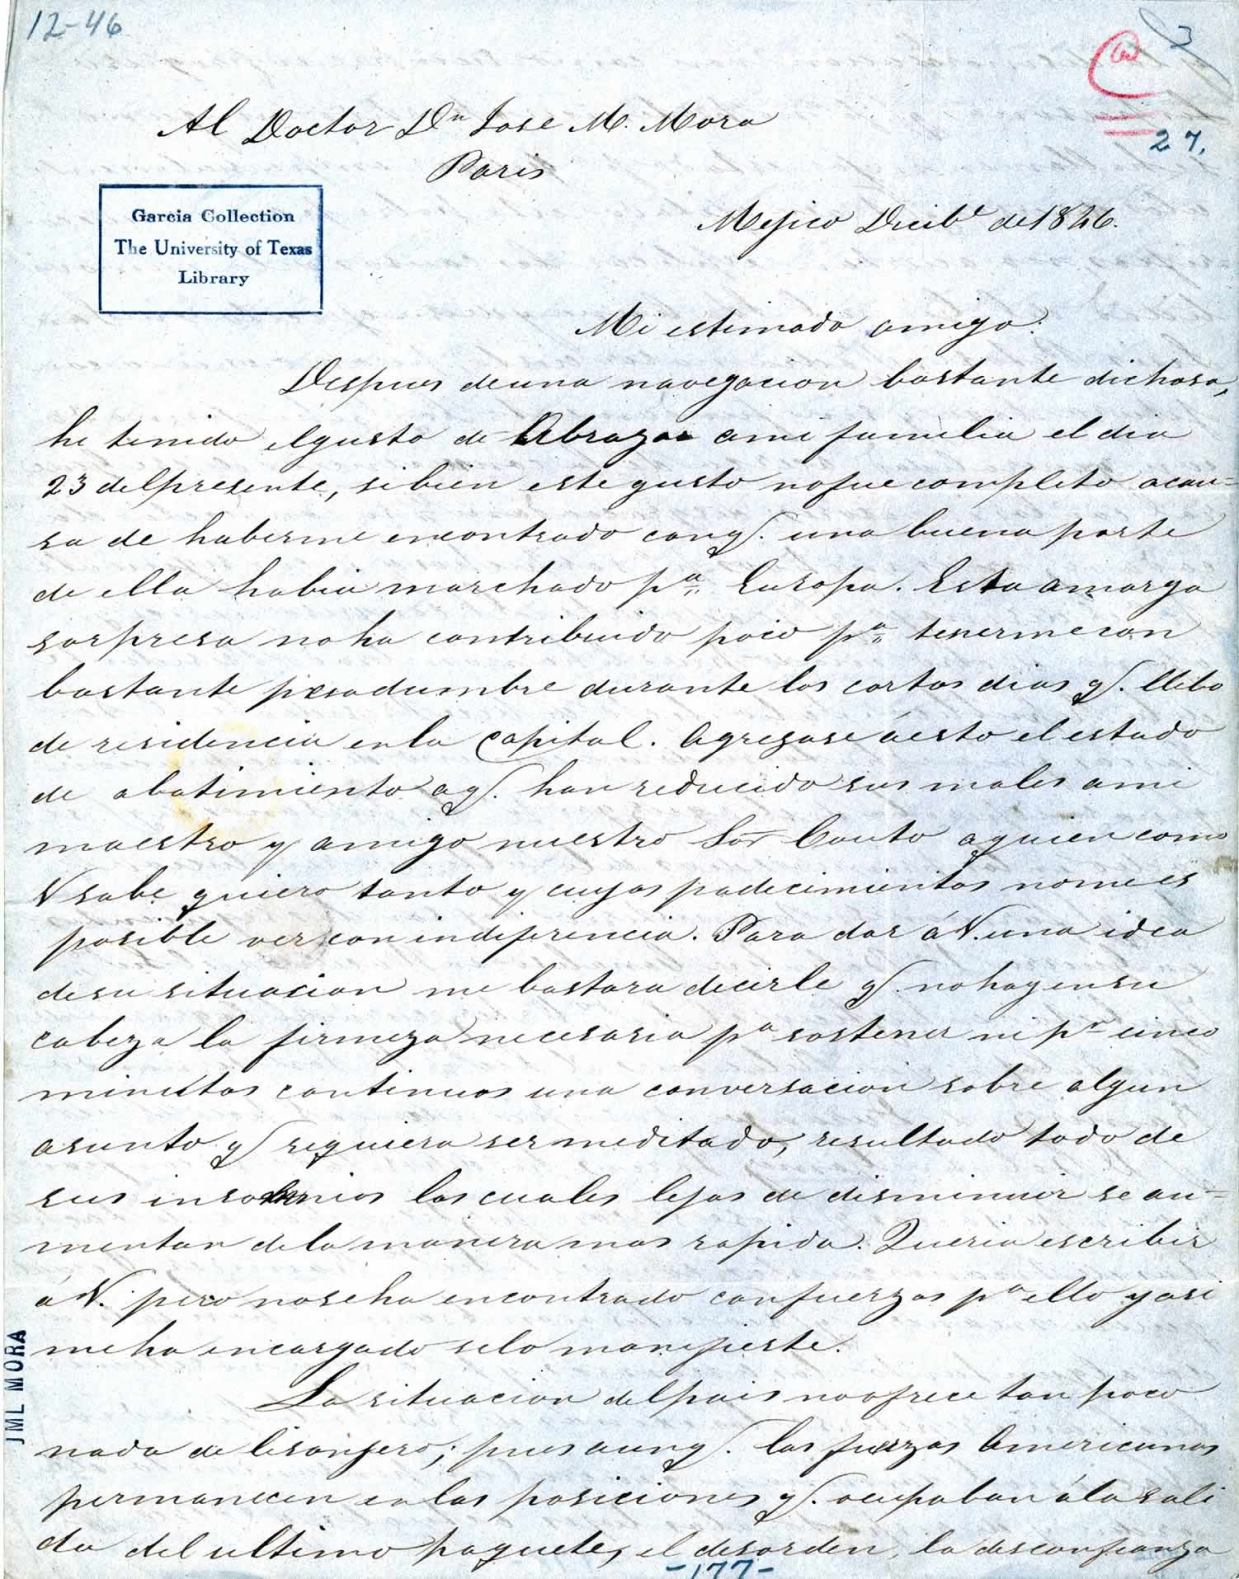 12-46
3
27.
Al Doctor Dn Jose M. Mora
Paris
Garcia Collection
The University of Texas
Library
Mejico Dicibe de 1846.
Mi estimado amigo:
Despues deuna navegacion bastante dichosa,
he tenido elgusto de Abrazar ami familia el dia
23 delpresente, sibien este gusto nofue completo acau-
sa de haberme encontrado conq. una buena parte
de ella habia marchado pa. Europa. Esta amarga
sorpresa noha contribuido poco pa. tenermecon
bastante pesadumbre durante los cortos dias q. llebo
de residencia enla Capital. Agregase áesto el estado
de abatimiento aq. han reducido sus males ami
maestro y amigo nuestro Sor Couto aquien como
V sabe quiero tanto y cuyos padecimientos nomees
posible ver con indiferencia. Para dar áV. una idea
desu situacion me bastara decirle q. nohayensu
cabeza la firmeza necesaria pa sostener ni pr cinco
minutos continuos una conversacion sobre algun
asunto q requiera sermeditado, resultado todo de
sus insomnios los cuales lejos de disminuir se au-
mentan dela manera mas rapida. Queria escribir
á V. pero noseha encontrado confuerzas pa ello yasi
meha encargado selo manifieste.
La situacion delpais noofrece tan poco
nada de lisonjero; pues aunq. las fuerzas Americanas
permanecen enlas posiciones q. ocupaban álasali
da del ultimo paquete, el desorden, la desconfianza
-177-
JML MORA